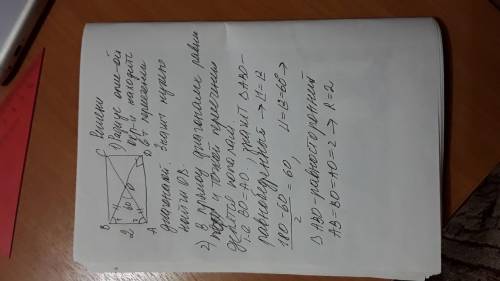 B C Решение
1) Радиус опис-ой
окр-и находится
в т. пересечения
2 60 O
A D
диагоналей. Значит нужно
найти OB.
2) В прямоуг. диагонали равны
и точкой пересечения
делятся пополам
т.е BO=AO, значит △ABO-
равнобедренный → ∠1=∠2
180-60 = 60, ∠1=∠2=60° →
2
△ABO-равносторонний
AB=BO=AO=2 → R=2